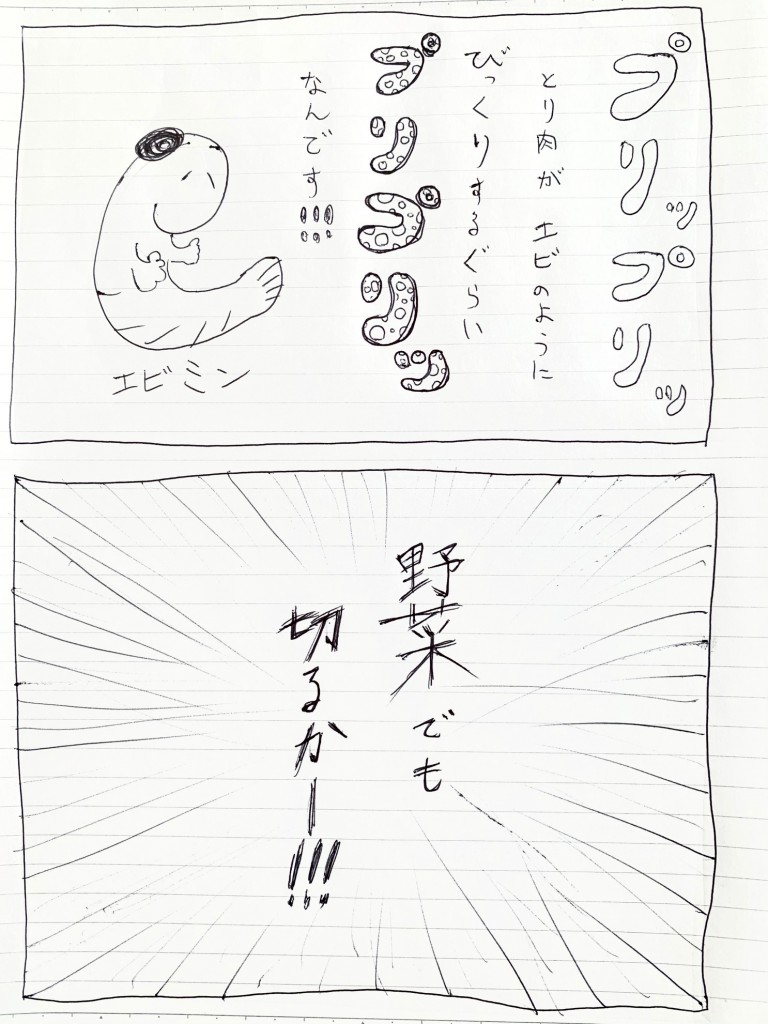 プリッ プリッ
とり肉が エビのように
びっくりするぐらい
プリプリッ
なんです!!!
エビミン
野菜でも
切るかー!!!